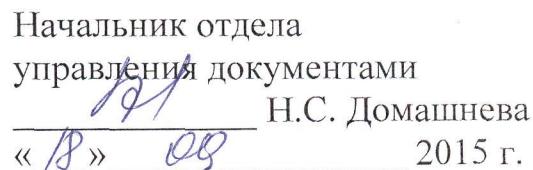 Начальник отдела
управления документами
Н.С. Домашнева
« 18 » 09 2015 г.